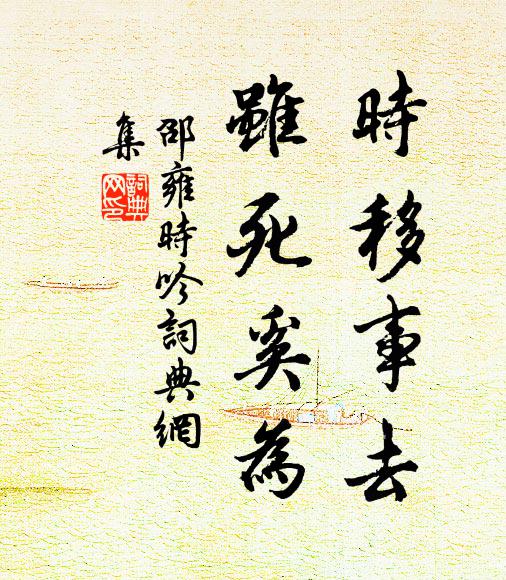 時移事去
雖死奚為
邵雍時吟詞典網
集
詞典
网印